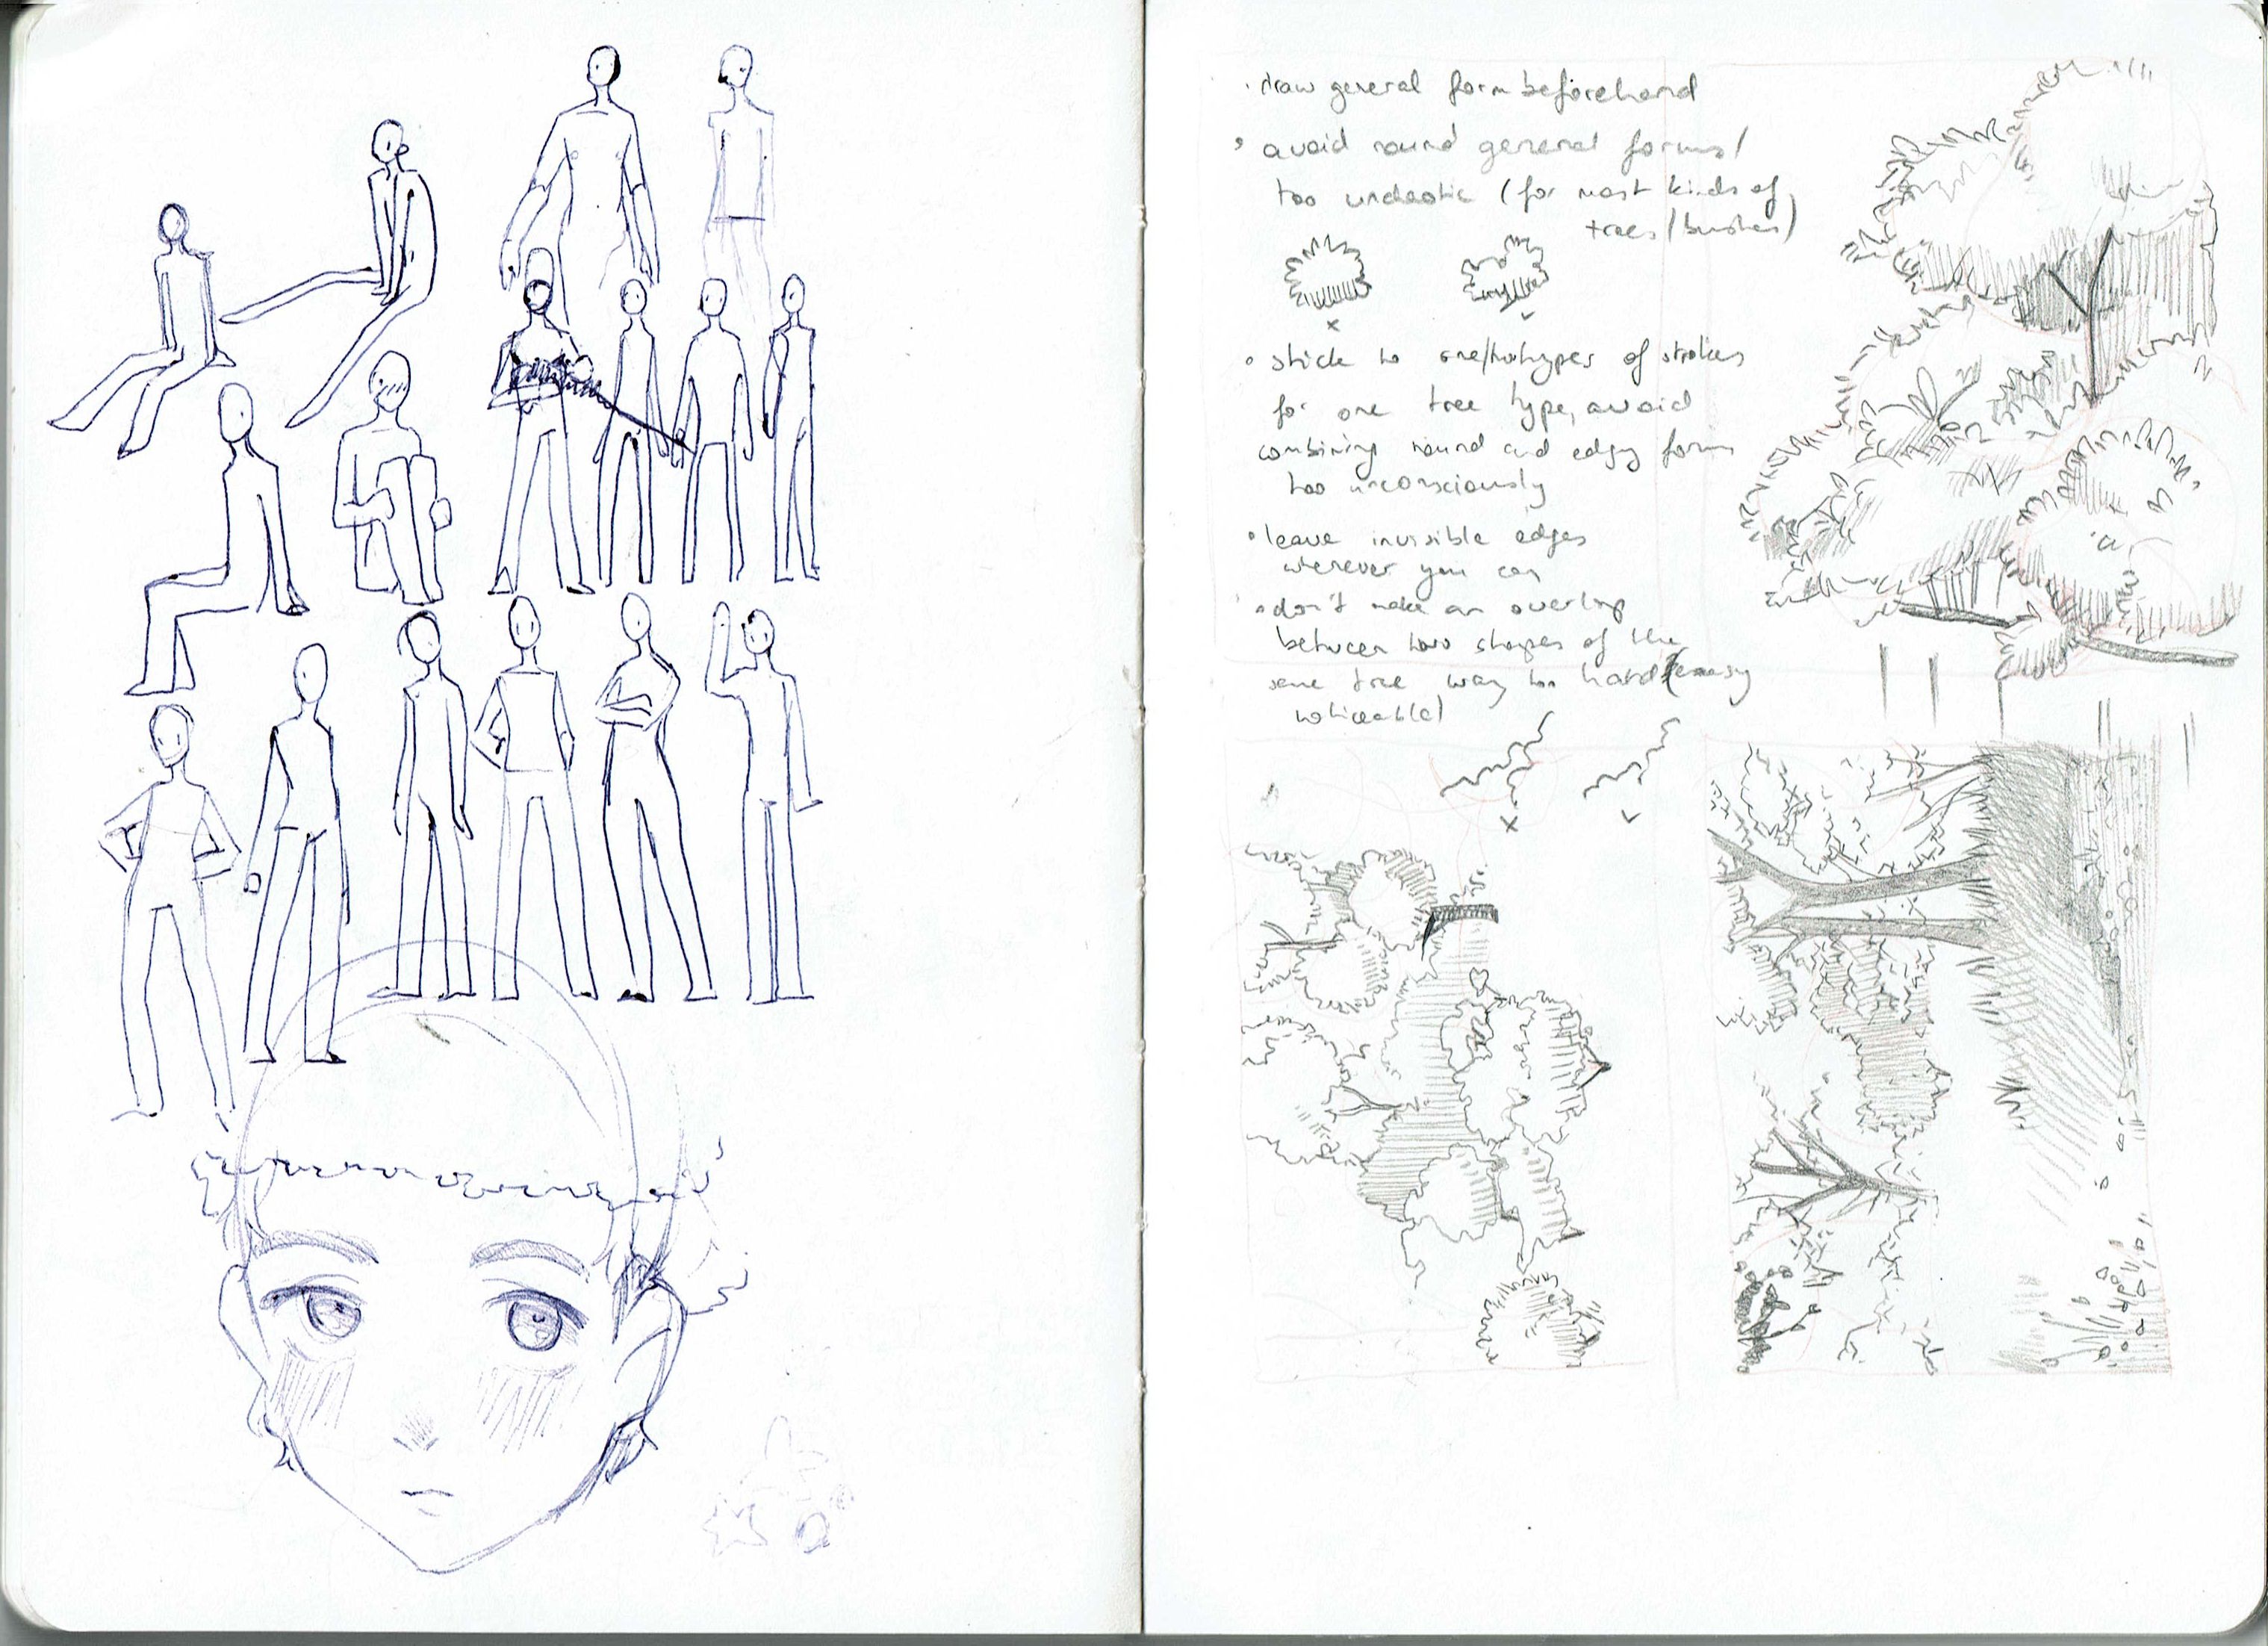 · draw general form beforehand
• avoid round general forms/
too unchaotic (for most kinds of
trees/bushes)
x ✓
• stick to one/two types of strokes
for one tree type, avoid
combining round and edgy forms
too unconsciously
• leave invisible edges
wherever you can
• don't make an overlap
between two shapes of the
same tree way too hard/easy
noticeable/
x ✓